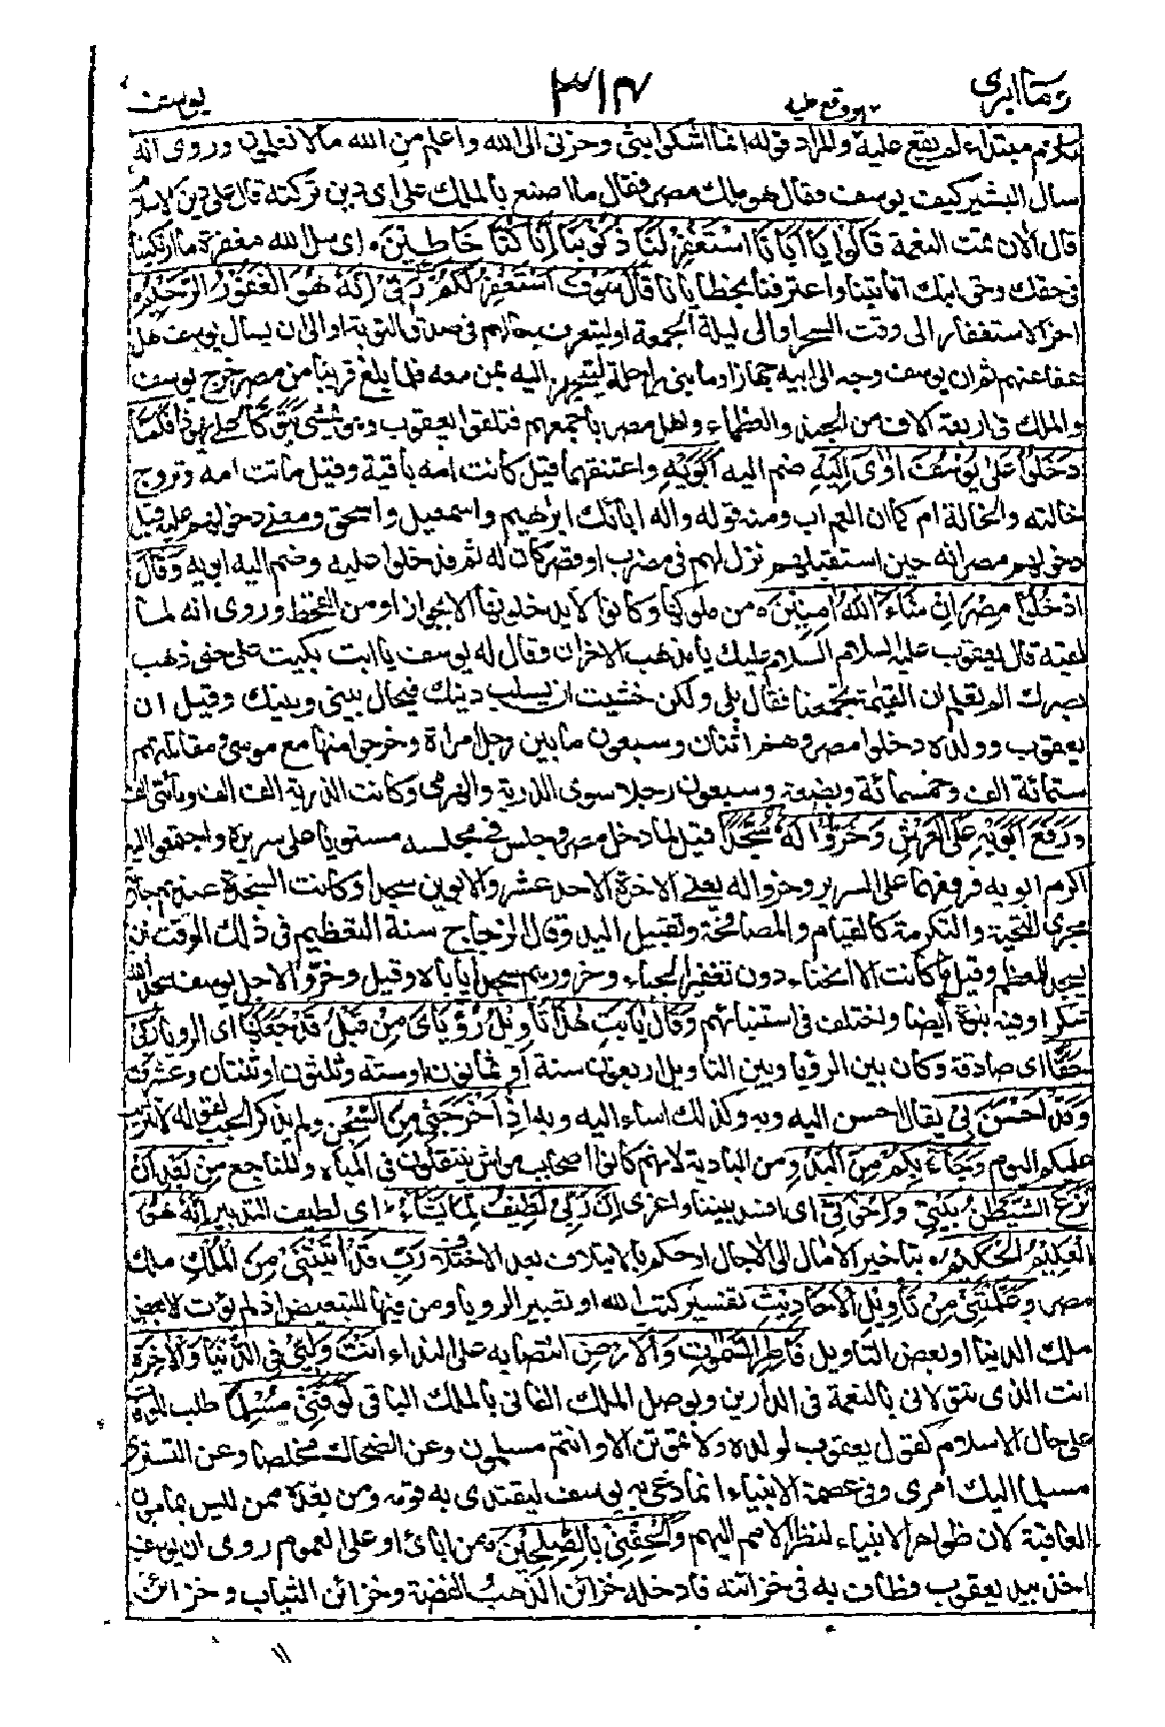 وما ابرى ٣١٤ يوسف
لم يقع عليه
كلام مبتدأ لم يقع عليه والمراد قوله انما اشكوا بثى وحزنى الى الله واعلم من الله مالا تعلمون وروى انه
سال البشير كيف يوسف فقال هو ملك مصر فقال ما اصنع بالملك على اى دين تركته قال على دين الاسلام
قال الآن تمت النعمة قَالُوا يَا أَبَانَا اسْتَغْفِرْ لَنَا ذُنُوبَنَا إِنَّا كُنَّا خَاطِئِينَ ه اى سل الله مغفرة ما ارتكبنا
فى حقك وحق ابنك انا تبنا واعترفنا بخطايانا قَالَ سَوْفَ أَسْتَغْفِرُ لَكُمْ رَبِّي إِنَّهُ هُوَ الْغَفُورُ الرَّحِيمُ ه
اخر الاستغفار الى وقت السحر او الى ليلة الجمعة او ليتعرف حالهم فى صدق التوبة او الى ان يسأل يوسف هل
عفا عنهم ثم ان يوسف وجه الى ابيه جهازا ومايتى راحلة ليتجهز اليه بمن معه فلما بلغ قريبا من مصر خرج يوسف
والملك فى اربعة الاف من الجند والعظماء واهل مصر باجمعهم فتلقوا يعقوب وهو يمشى يتوكأ على يهوذا فَلَمَّا
دَخَلُوا عَلَى يُوسُفَ آوَى إِلَيْهِ ضم اليه أَبَوَيْهِ واعتنقهما قيل كانت امه باقية وقيل ماتت امه وتزوج
خالته والخالة ام كما ان العم اب ومنه قوله واله ابائك ابرهيم واسمعيل واسحق ومعنى دخولهم عليه قبل
دخولهم مصر انه حين استقبلهم نزل لهم فى مضرب او قصر كان له ثم فدخلوا عليه وضم اليه ابويه وَقَالَ
ادْخُلُوا مِصْرَ إِنْ شَاءَ اللَّهُ آمِنِينَ ه من ملوكها وكانوا لايدخلونها الا بجواز او من القحط وروى انه لما
لقيه قال يعقوب عليه السلام السلام عليك يا مذهب الاحزان وقال له يوسف يا ابت بكيت على حتى ذهب
بصرك الم تعلم ان القيمة تجمعنا فقال بلى ولكن خشيت ان يسلب دينك فيحال بينى وبينك وقيل ان
يعقوب وولده دخلوا مصر وهم اثنان وسبعون ما بين رجل وامراة وخرجوا منها مع موسى ومقاتلتهم
ستمائة الف وخمسمائة وبضعة وسبعون رجلا سوى الذرية والهرمى وكانت الذرية الف الف ومائتى الف
وَرَفَعَ أَبَوَيْهِ عَلَى الْعَرْشِ وَخَرُّوا لَهُ سُجَّدًا قيل لما دخل مصر وجلس فى مجلسه مستويا على سريره واجتمعوا اليه
اكرم ابويه فرفعهما على السرير وخروا له يعنى الاخوة الاحد عشر والابوين سجدا وكانت السجدة عندهم جارية
مجرى التحية والتكرمة كالقيام والمصافحة وتقبيل اليد وقال الزجاج سنة التعظيم فى ذلك الوقت ان
يسجد للمعظم وقيل ما كانت الا انحناء دون تعفير الجباه وخرورهم سجدا يأباه وقيل وخروا لاجل يوسف سجدا لله
شكرا وفيه نبوة ايضا واختلف فى استنبائهم وَقَالَ يَا أَبَتِ هَذَا تَأْوِيلُ رُؤْيَايَ مِنْ قَبْلُ قَدْ جَعَلَهَا اى الرويا رَبِّي
حَقًّا اى صادقة وكان بين الرؤيا وبين التاويل اربعون سنة او ثمانون او ستة وثلثون او ثنتان وعشرون
وَقَدْ أَحْسَنَ بِي يقال احسن اليه وبه وكذلك اساء اليه وبه إِذْ أَخْرَجَنِي مِنَ السِّجْنِ ولم يذكر الجب لقوله لا تثريب
عليكم اليوم وَجَاءَ بِكُمْ مِنَ الْبَدْوِ من البادية لانهم كانوا اصحاب مواش ينتقلون فى المياه والمناجع مِنْ بَعْدِ أَنْ
نَزَغَ الشَّيْطَنُ بَيْنِي وَبَيْنَ إِخْوَتِي اى افسد بيننا واغرى إِنَّ رَبِّي لَطِيفٌ لِمَا يَشَاءُ اى لطيف التدبير إِنَّهُ هُوَ
الْعَلِيمُ الْحَكِيمُ ه بتاخير الامال الى الاجال او حكم بالايتلاف بعد الاختلاف رَبِّ قَدْ آتَيْتَنِي مِنَ الْمُلْكِ ملك
مصر وَعَلَّمْتَنِي مِنْ تَأْوِيلِ الْأَحَادِيثِ تفسير كتب الله او تعبير الرويا ومن فيهما للتبعيض اذ لم يؤت الا بعض
ملك الدنيا او بعض التاويل فَاطِرَ السَّمَوَتِ وَالْأَرْضِ انتصابه على النداء أَنْتَ وَلِيِّي فِي الدُّنْيَا وَالْآخِرَةِ
انت الذى تتولانى بالنعمة فى الدارين وبوصل الملك الفانى بالملك الباقى تَوَفَّنِي مُسْلِمًا طلب الوفاة
على حال الاسلام كقول يعقوب لولده ولا تموتن الا وانتم مسلمون وعن الضحاك مخلصا وعن التسترى
مسلما اليك امرى وفى عصمة الانبياء انما دعى به يوسف ليقتدى به قومه ومن بعده ممن ليس بمامون
العاقبة لان ظواهر الانبياء لنظر الامم اليهم وَأَلْحِقْنِي بِالصَّلِحِينَ ه من ابائى او على العموم روى ان يوسف
اخذ بيد يعقوب وطاف به فى خزائنه فادخله خزائن الذهب والفضة وخزائن الثياب وخزائن